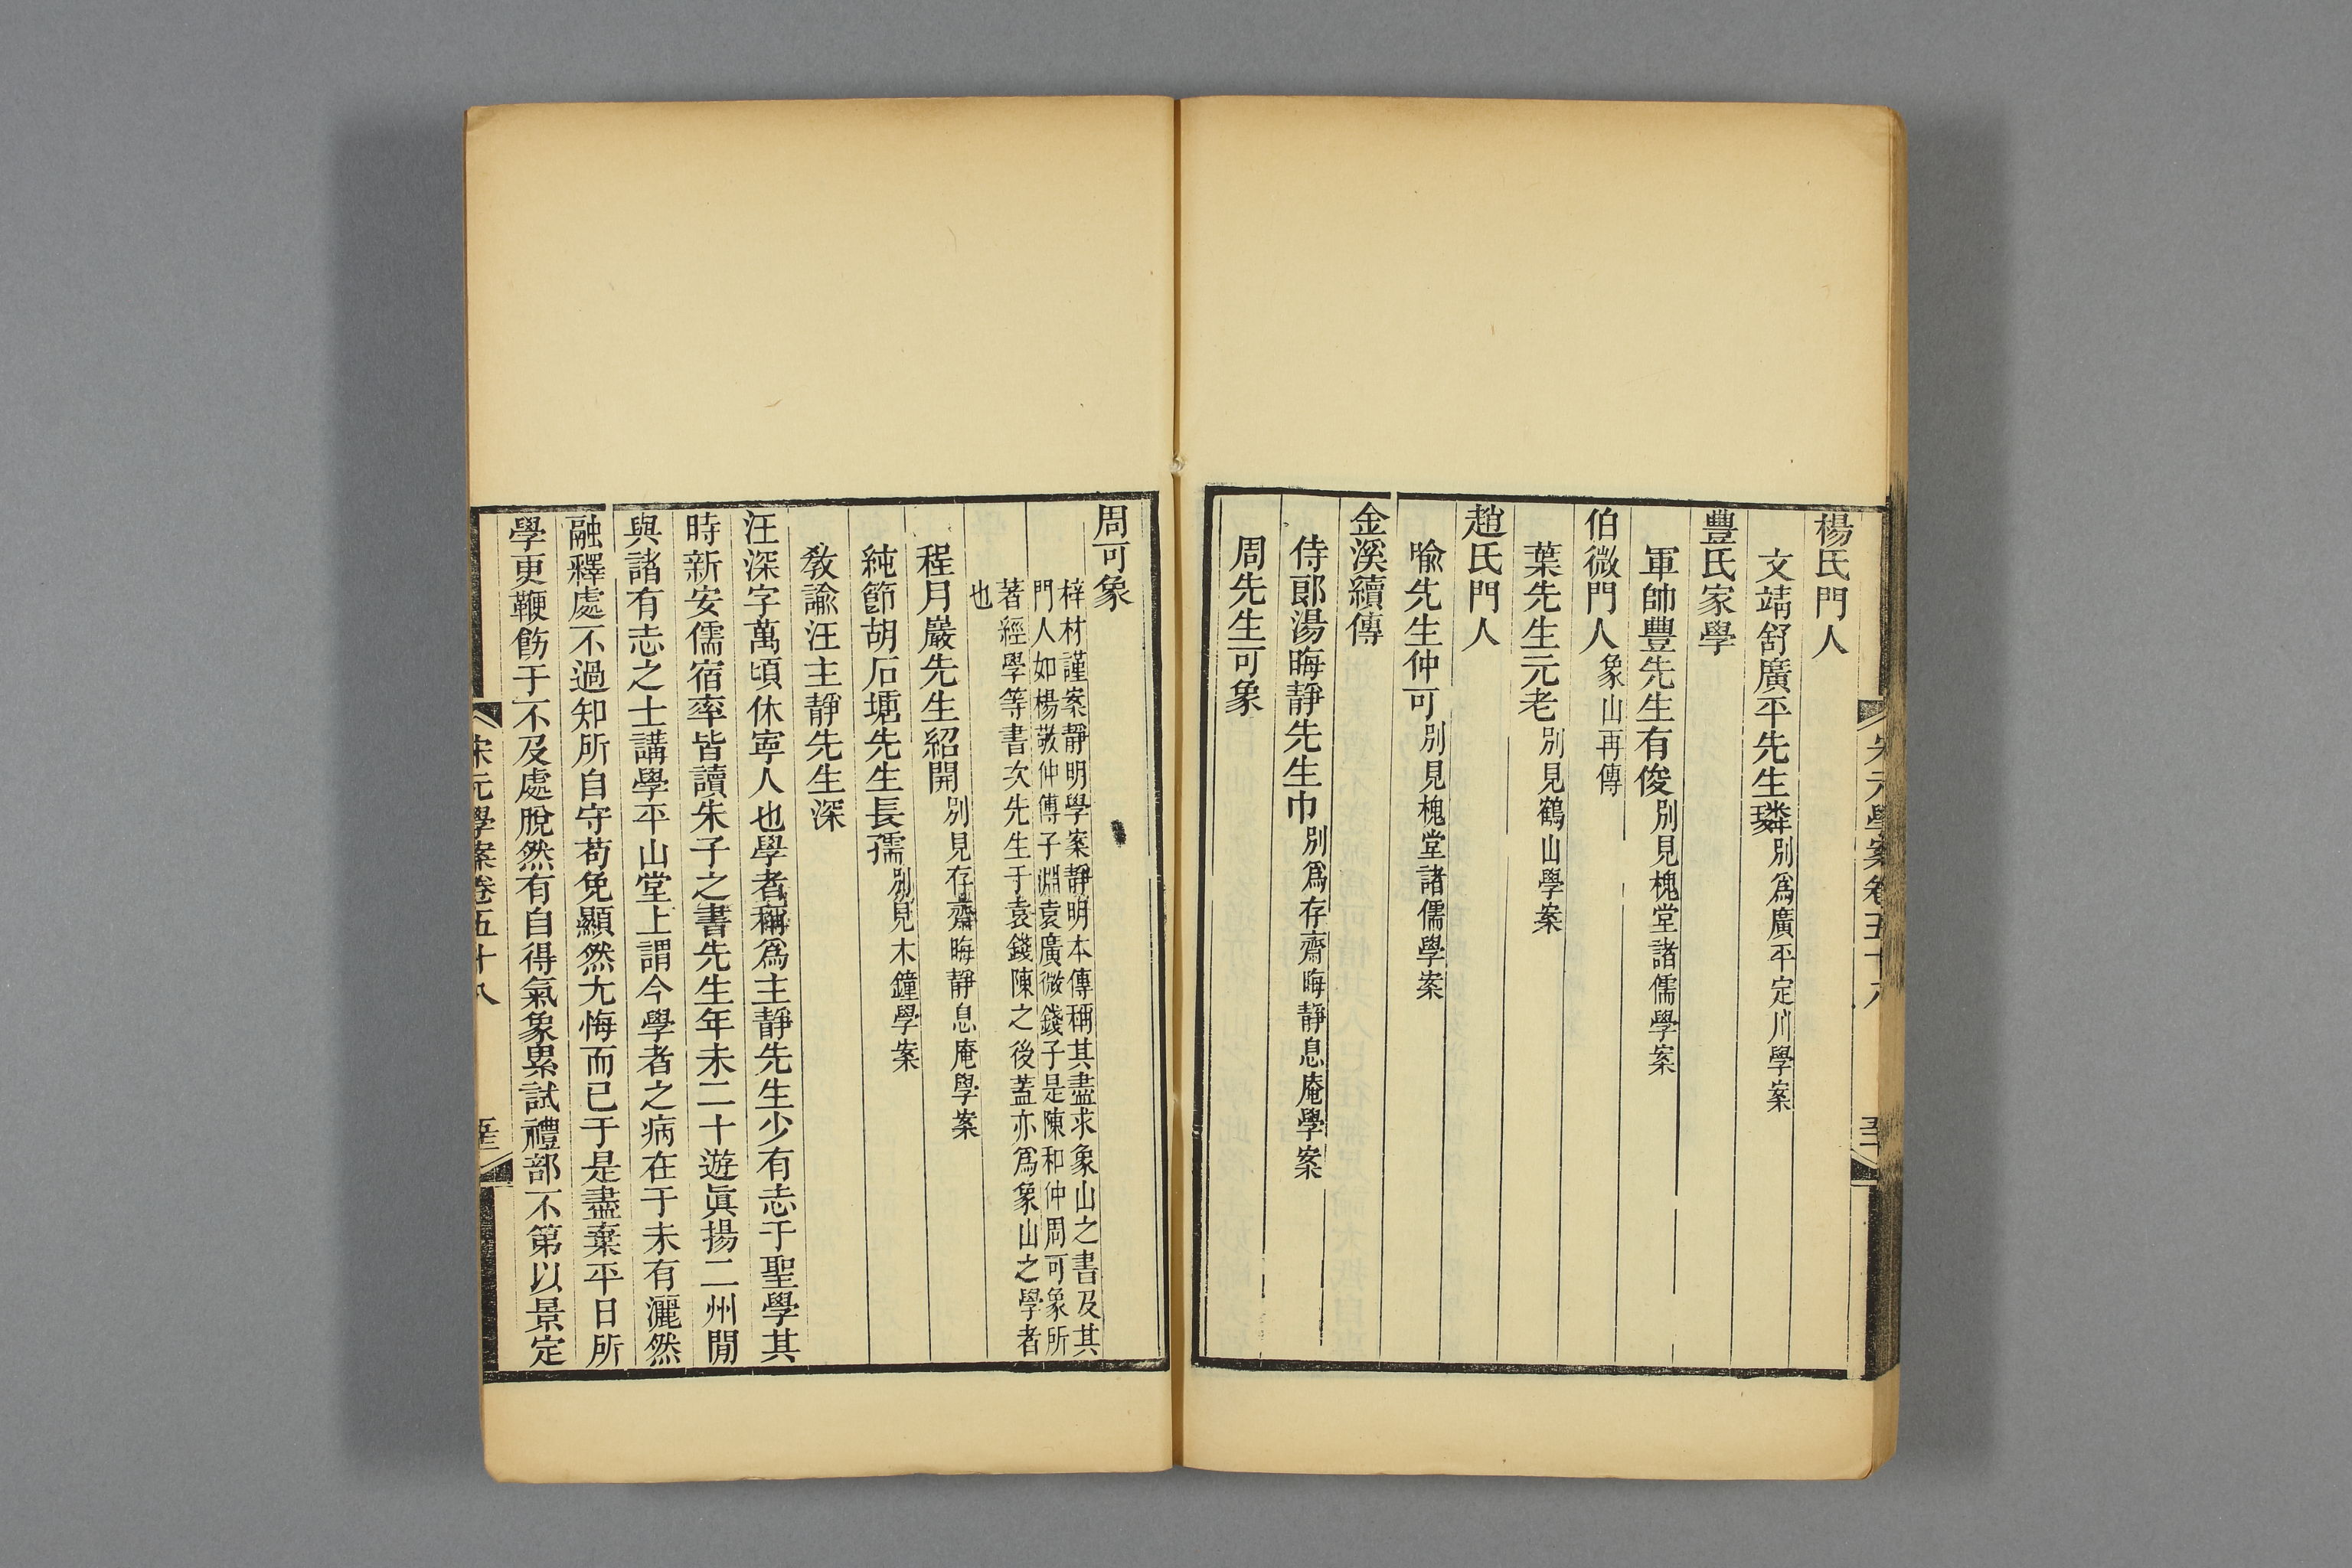 楊氏門人
文靖舒廣平先生璘別爲廣平定川學案
豐氏家學
軍帥豐先生有俊別見槐堂諸儒學案
伯微門人象山再傳
葉先生元老別見鶴山學案
趙氏門人
喩先生仲可別見槐堂諸儒學案
金溪續傳
侍郎湯晦靜先生巾別爲存齋晦靜息庵學案
周先生可象
周可象
梓材謹案靜明學案靜明本傳稱其盡求象山之書及其
門人如楊敬仲傅子淵袁廣微錢子是陳和仲周可象所
著經學等書次先生于袁錢陳之後蓋亦爲象山之學者
也
程月巖先生紹開別見存齋晦靜息庵學案
純節胡石塘先生長孺別見木鐘學案
敎諭汪主靜先生深
汪深字萬頃休寧人也學者稱爲主靜先生少有志于聖學其
時新安儒宿率皆讀朱子之書先生年未二十遊眞揚二州閒
與諸有志之士講學平山堂上謂今學者之病在于未有灑然
融釋處不過知所自守苟免顯然尤悔而已于是盡棄平日所
學更鞭飭于不及處脫然有自得氣象累試禮部不第以景定
宋元學案卷五十八